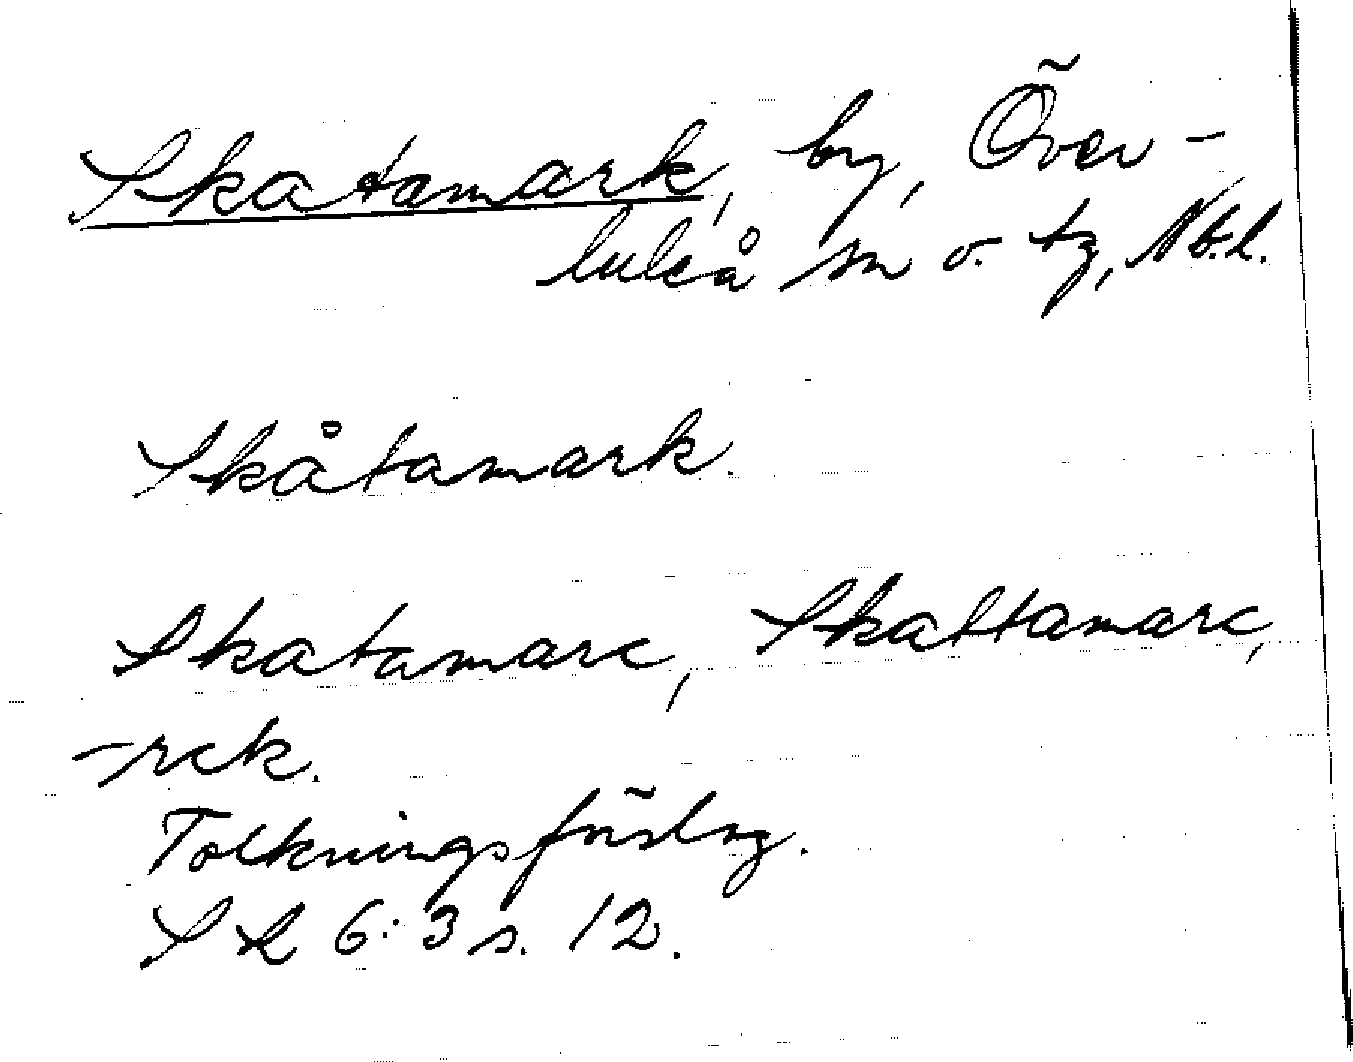 Skatamark, by, Över-
luleå sn o. tg, Nb.l.
Skåtamark.
Skatamarc, Skattamarc,
-rck.
Tolkningsförslag.
S L 6:3 s. 12.